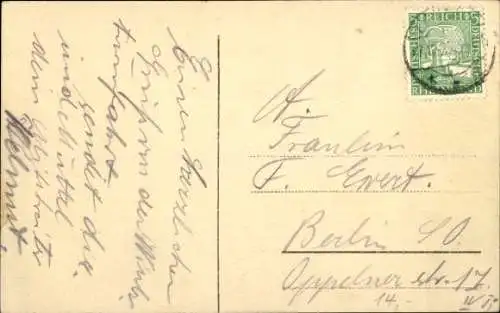 Einen Herzlichen
Gruß von der
turnfahrt
sendet dir
und Mutter
dein
Helmut.
DEUTSCHES REICH
A.
Fräulein
F. Evert.
Berlin SO.
Oppelner str. 17
14,-